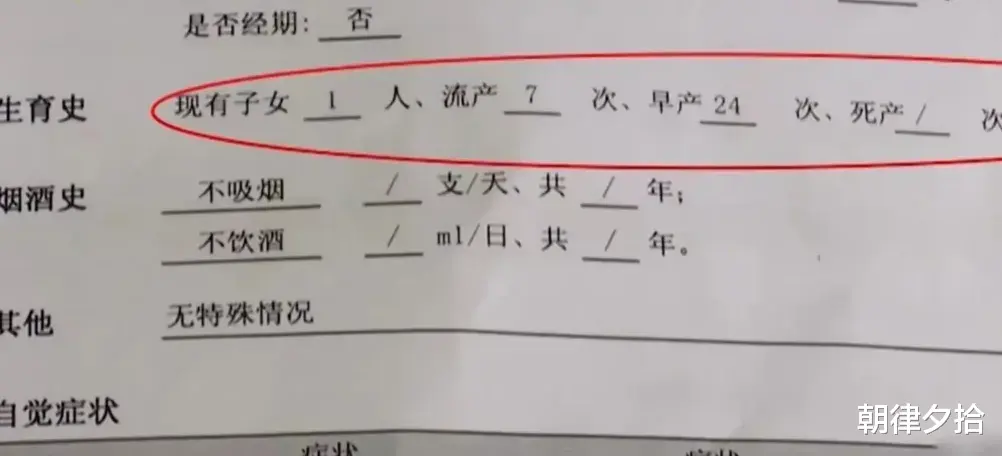 是否经期: 否
生育史 现有子女 1 人、流产 7 次、早产 24 次、死产 / 次
烟酒史 不吸烟 / 支/天、共 / 年;
不饮酒 / ml/日、共 / 年。
其他 无特殊情况
自觉症状
症状 症状
朝律夕拾